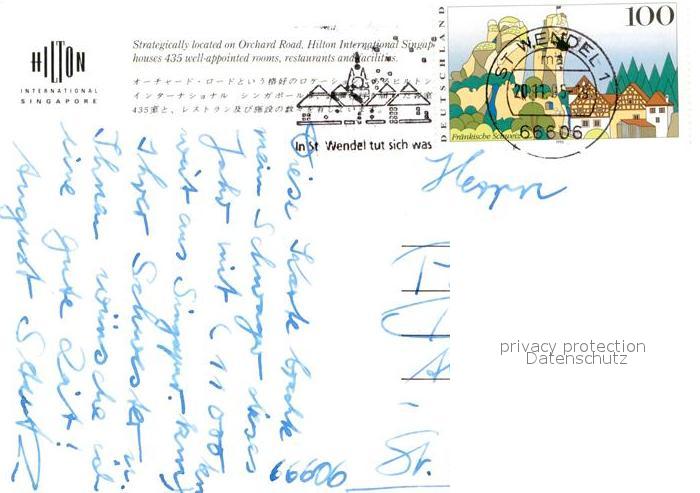 HILTON
INTERNATIONAL
SINGAPORE
Strategically located on Orchard Road, Hilton International Singap
houses 435 well-appointed rooms, restaurants and facilities.
オーチャード・ロードという格好のロケーシ ヒルトン
インターナショナル シンガポール
435室と、レストラン及び施設の数々を
DEUTSCHLAND
100
Fränkische Schweiz
ST WENDEL 1
20.11.
66606
In St Wendel tut sich was
Diese Karte brachte
mein Schwager dieses
Jahr mit (11000 km
weit aus Singapur
Ihrer Schwester u.
Ihnen wünsche ich
eine gute Zeit!
August
Herrn
St.
privacy protection
Datenschutz